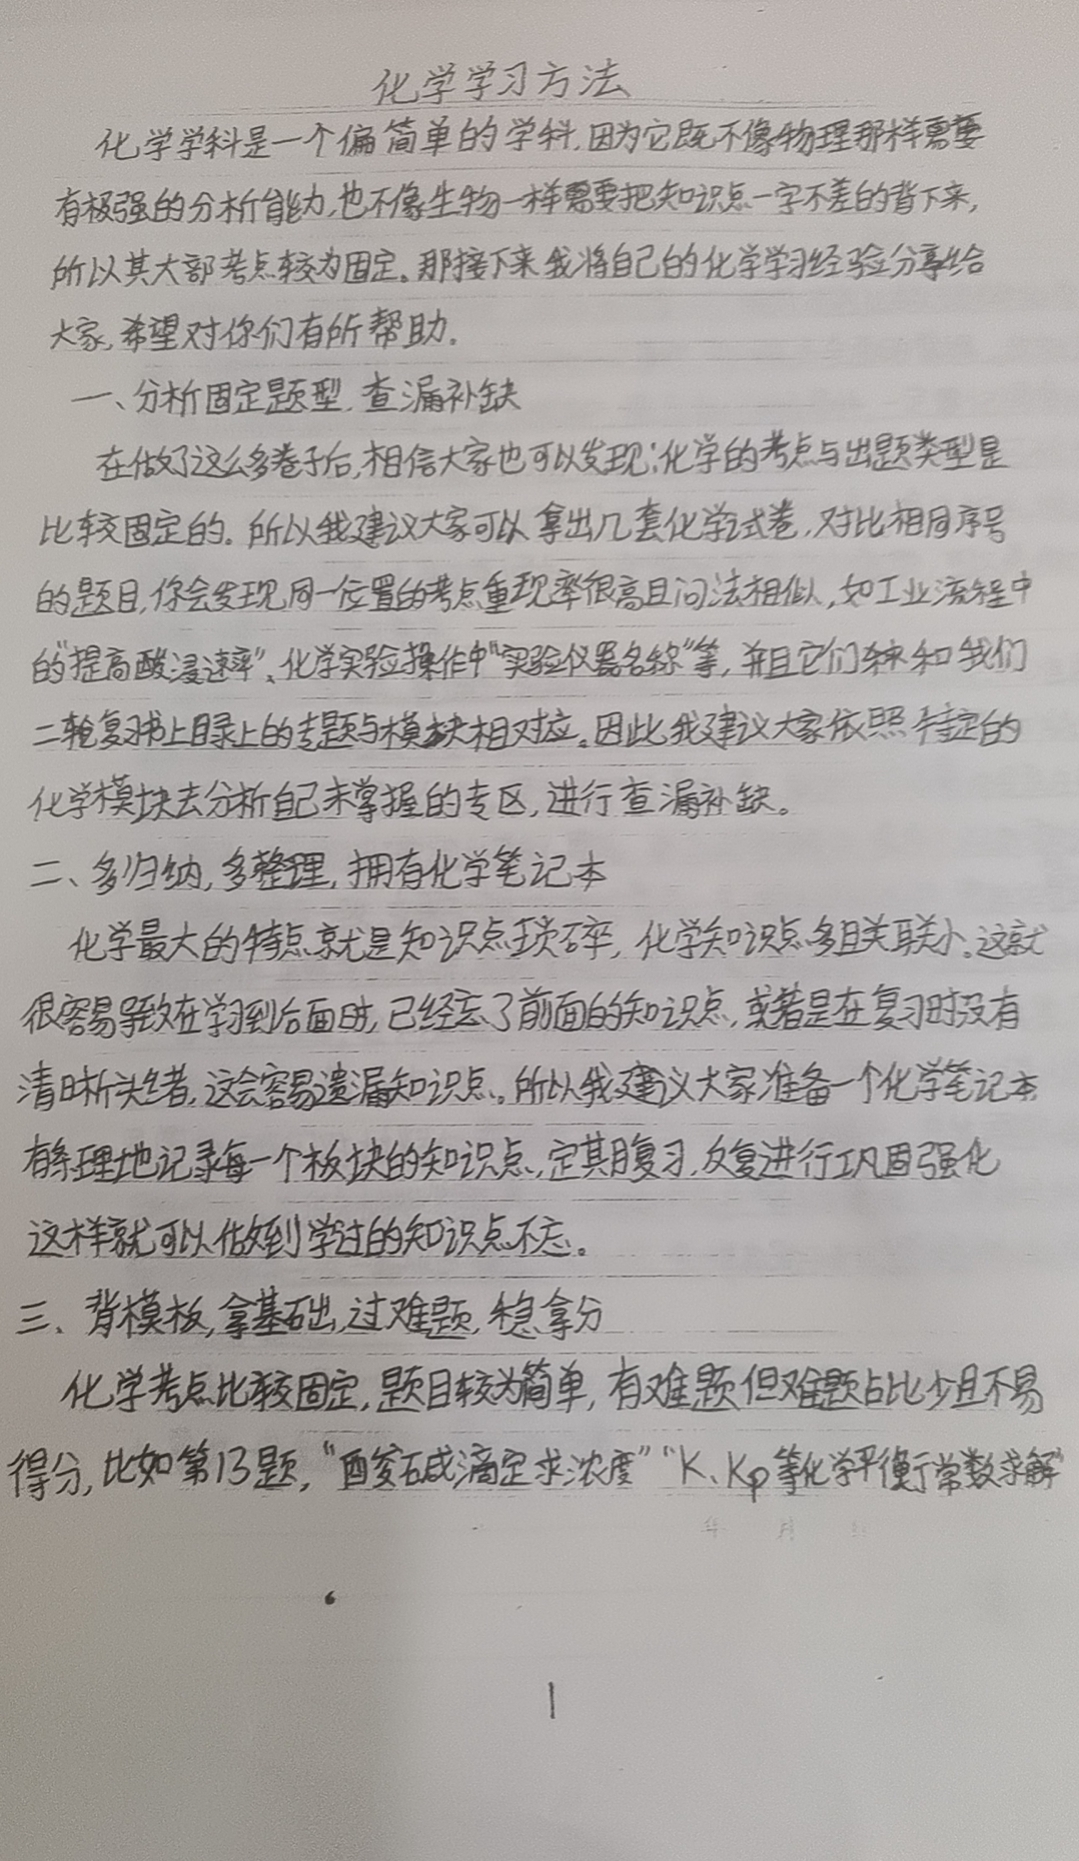 化学学习方法
化学学科是一个偏简单的学科,因为它既不像物理那样需要
有极强的分析能力,也不像生物一样需要把知识点一字不差的背下来,
所以其大部考点较为固定。那接下来我将自己的化学学习经验分享给
大家,希望对你们有所帮助。
一、分析固定题型,查漏补缺
在做了这么多卷子后,相信大家也可以发现:化学的考点与出题类型是
比较固定的。所以我建议大家可以拿出几套化学试卷,对比相同序号
的题目,你会发现,同一位置的考点重现率很高且问法相似,如工业流程中
的“提高酸浸速率”、化学实验操作中“实验仪器名称”等,并且它们 和我们
二轮复习书上目录上的专题与模块相对应。因此我建议大家依照特定的
化学模块去分析自己未掌握的专区,进行查漏补缺。
二、多归纳,多整理,拥有化学笔记本
化学最大的特点就是知识点琐碎,化学知识点多且关联小。这就
很容易导致在学习到后面时,已经忘了前面的知识点,或者是在复习时没有
清晰头绪,这会容易遗漏知识点。所以我建议大家准备一个化学笔记本
有条理地记录每一个板块的知识点,定期复习,反复进行巩固强化
这样就可以做到学过的知识点不忘。
三、背模板,拿基础,过难题,稳拿分
化学考点比较固定,题目较为简单,有难题但难题占比少且不易
得分,比如第13题,“酸碱滴定求浓度”“K、Kp等化学平衡常数求解”
年 月 日
1